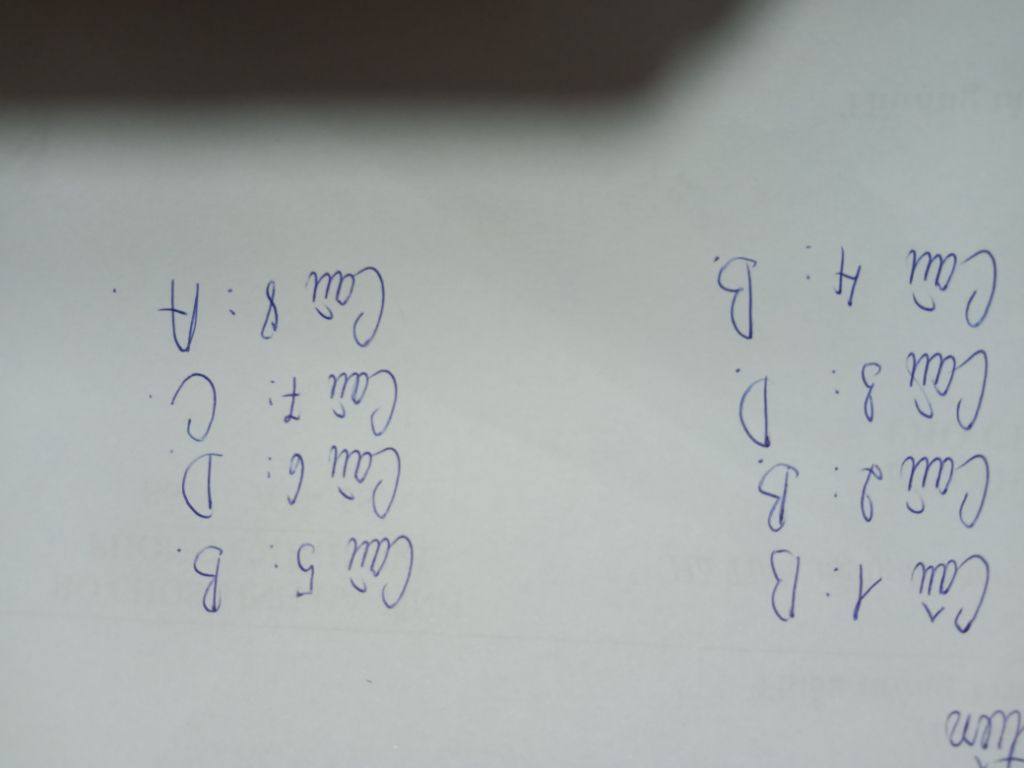 Câu 1: B
Câu 2: B.
Câu 3: D.
Câu 4: B.
Câu 5: B.
Câu 6: D.
Câu 7: C.
Câu 8: A.